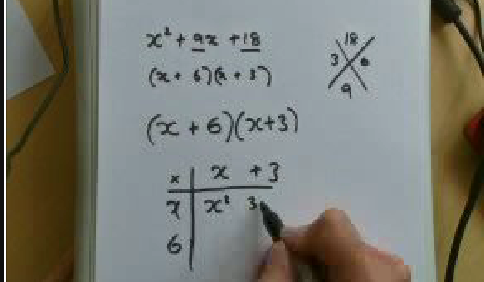 x² + 9x + 18
(x + 6)(x + 3)
18
3 6
9
(x + 6)(x+3)
x x + 3
x x² 3
6